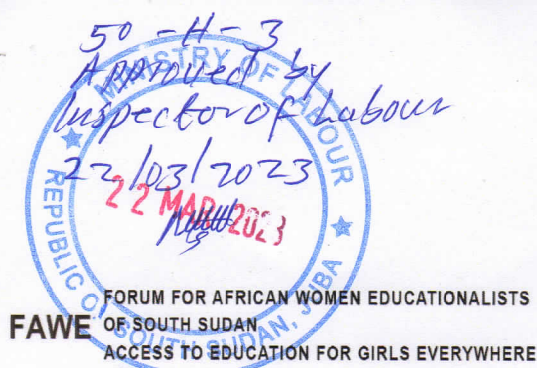 50 - H - 3
Approved by
Inspector of Labour
22/03/2023
MINISTRY OF LABOUR
REPUBLIC OF SOUTH SUDAN, JUBA
22 MAR 2023
FORUM FOR AFRICAN WOMEN EDUCATIONALISTS
FAWE OF SOUTH SUDAN
ACCESS TO EDUCATION FOR GIRLS EVERYWHERE